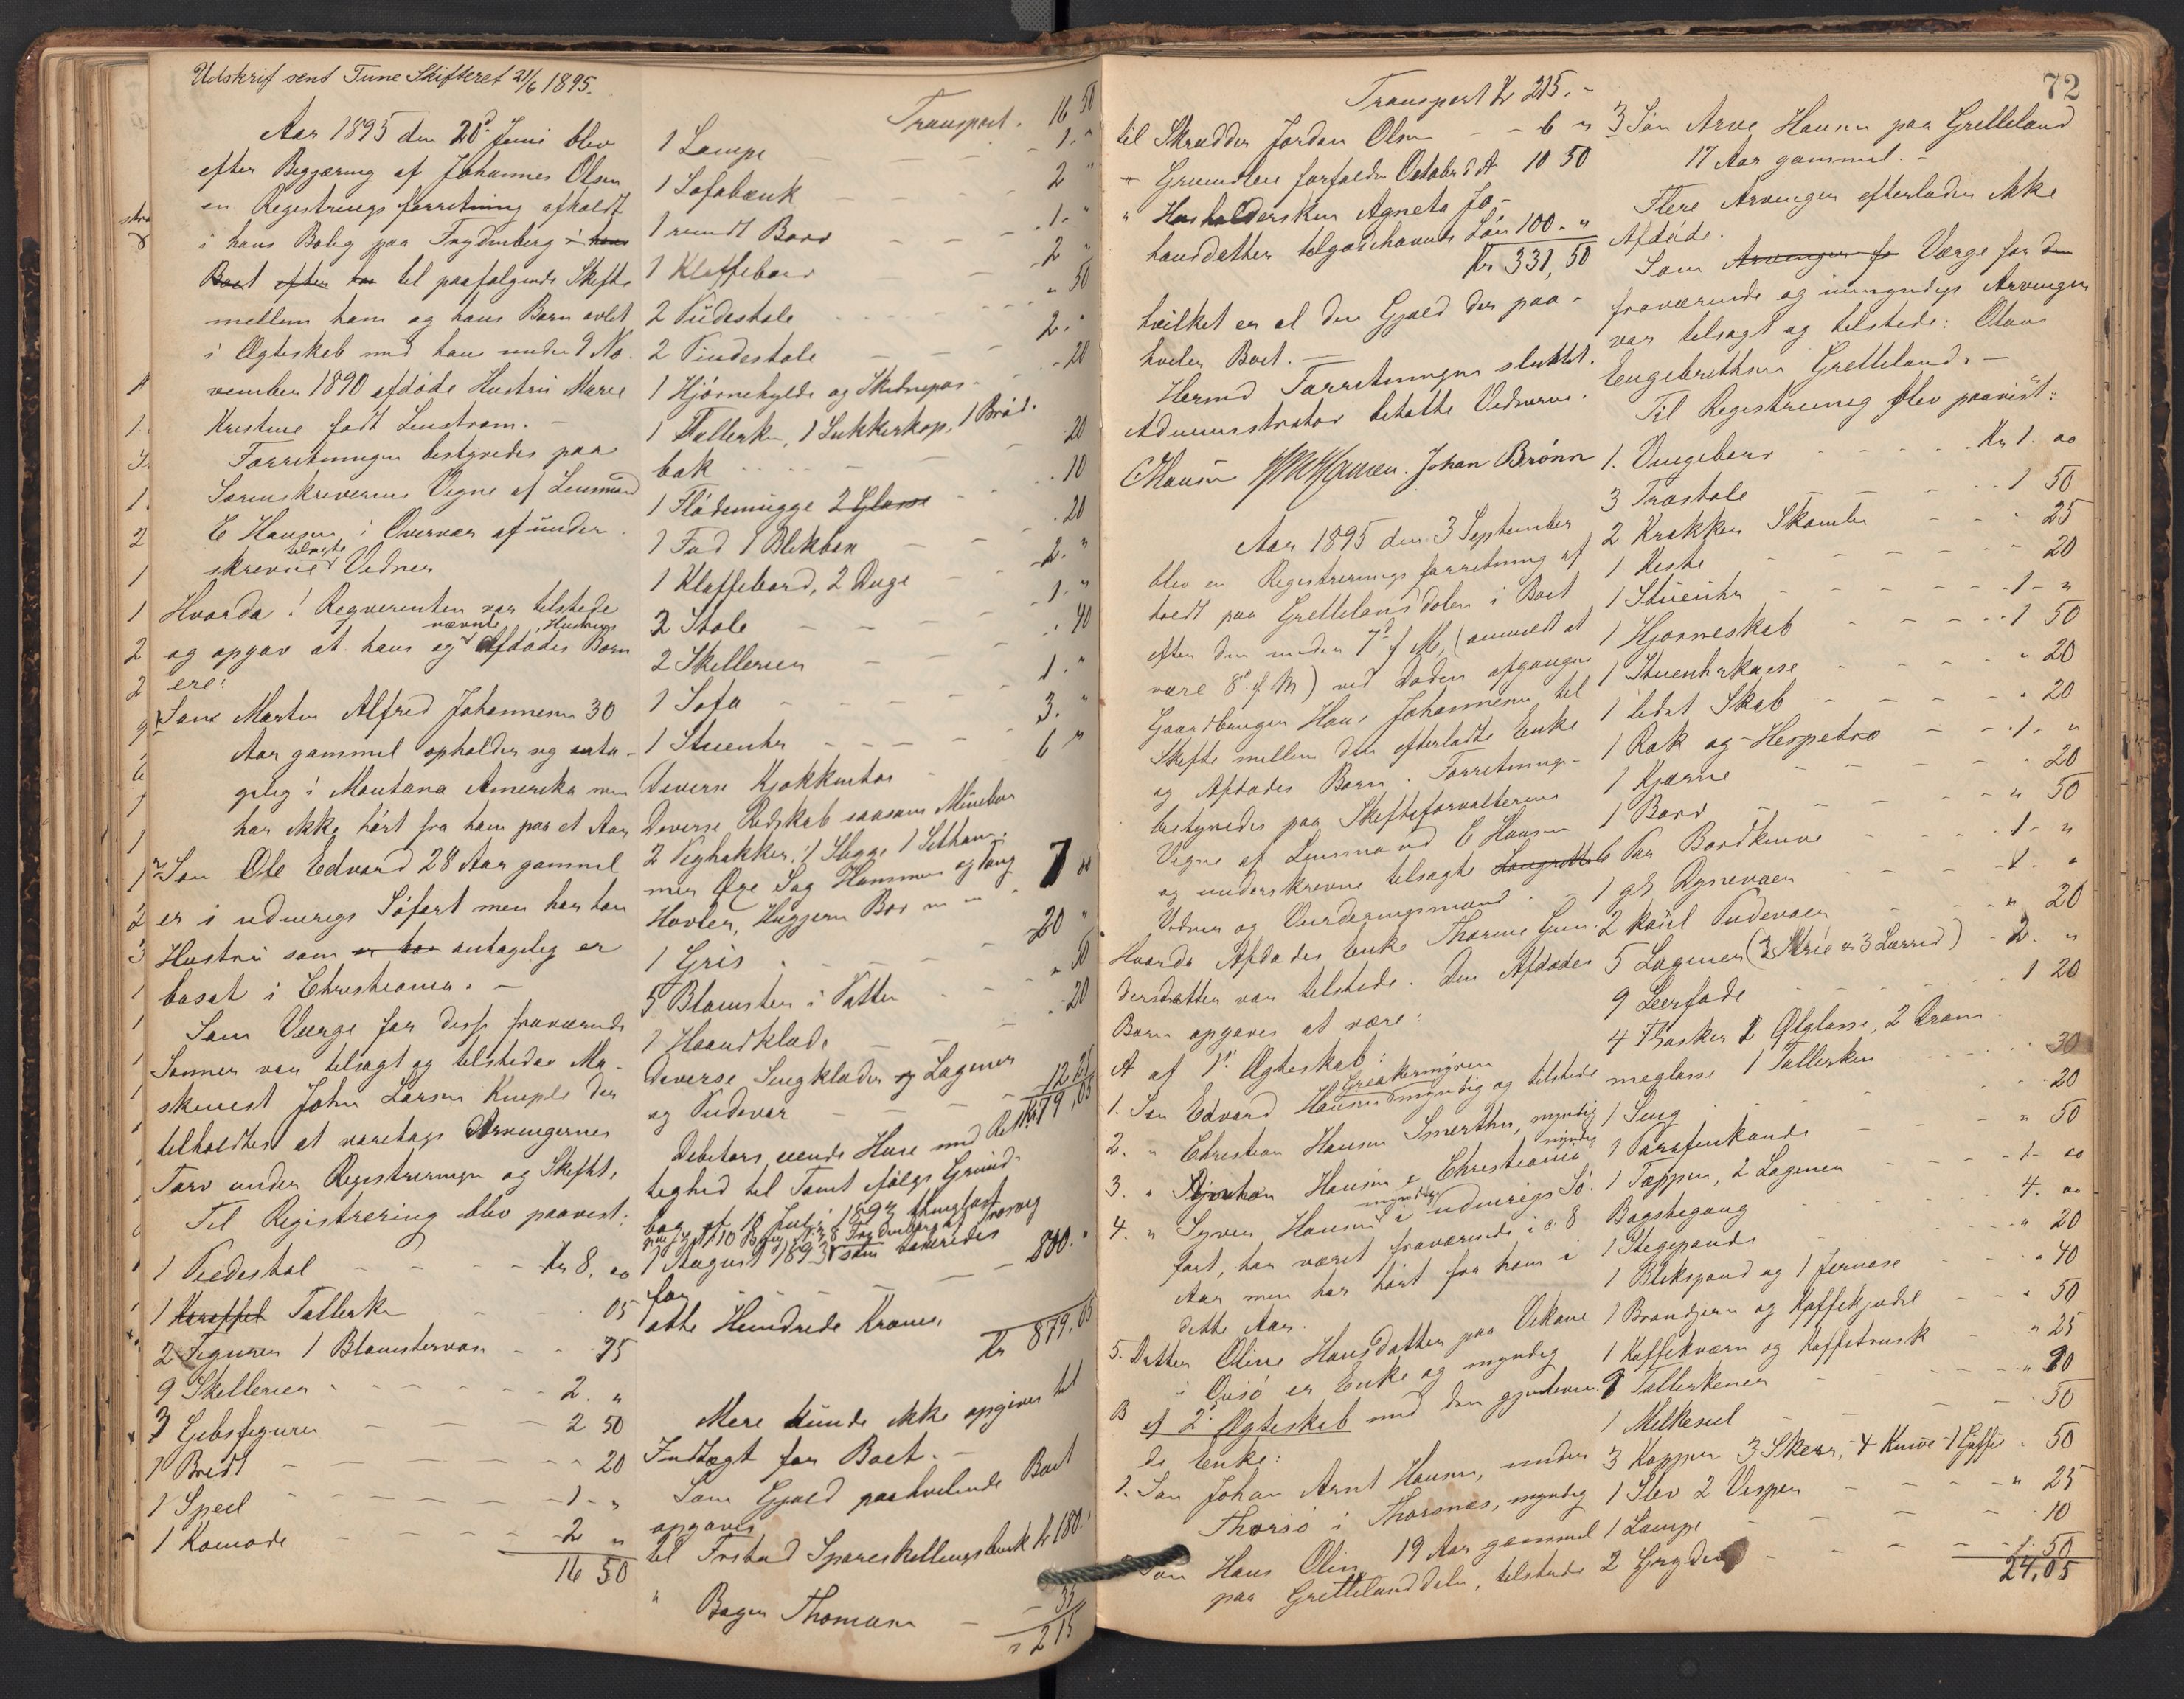 Udskrif sent Tune Skifteret 21/6 1895.
Aar 1895 den 20d Juni blev
efter Begjæring af Johannes Olsen
en Registrerings forretning afholdt
i hans Bolig paa Frydenberg i hans
Boet efter til paafølgende Skifte
mellem ham og hans Børn avlet
i Ægteskab med hans under 9 No-
vember 1890 afdøde Hustru Marie
Kristine født Lenstrøm. -
Forretningen bestyredes paa
Sorenskriverens Vegne af Lensmand
E Hansen i Overvær af under-
skrevne tilsagte Vidner
Hvorda! Requirenten var tilstede
og opgav at hans og nævnte Hustrus Afdødes Børn
ere:
1 Søn Martin Alfred Johannesen 30
Aar gammel opholder sig anta-
gelig i Montana Amerika men
har ikke hørt fra ham paa et Aar
2 Søn Ole Edvard 28 Aar gammel
er i udenrigs Søfart men har han
Hustru som er antagelig er
bosat i Christiania. -
Som Værge for disse fraværende
Sønner var tilsagt og tilstede Ma-
skinist John Larsen Kneple der
tilholdtes at varetage Arvingernes
Tarv under Registreringen og Skiftet.
Til Registrering blev paavist:
1 Piedestal - - - Kr 8. 00
1 Karaffel Tallerken - - 05
2 Figurer 1 Blomstervase - - 75
9 Skillerier - - - 2. "
3 Gibsfigurer - - 2 50
1 Bredt - - - 20
1 Speil - - - 1 - "
1 Komode - - - 2 "
16 50
Transport. 16 50
1 Lampe - - - 1. "
1 Sofabænk - - - 2 "
1 rundt Bord - - - 1. "
1 Klaffebord - - - 2 "
2 Pudestole - - - " 50
2 Pindestole - - - 2. "
1 Hjørnehylde og Skilnepos - - 20
1 Tallerken, 1 Sukkerkop, 1 Brød-
bak - - - 20
1 Flødemugge 2 Glasse - - 10
1 Fad 1 Blikbox - - 20
1 Klaffebord, 2 Duge - - 2. "
2 Stole - - - 1. "
2 Skillerier - - - " 40
1 Sofa - - - 1. "
1 Stueuhr - - - 3. "
Diverse Kjøkkentøi - - 6 "
Diverse Redskab saasom Minebor
2 Veghakker, 1 Slegge 1 Setham-
mer Øxe Sag Hammer og Tang
Høvler, Huggjern Bor m m 7 00
1 Gris - - - 20 "
5 Blomster i Potter - - " 50
1 Haandklæde - - - 20
Diverse Sengklæder og Lagener
og Pudevar - - - 12 25
79,05
Debitors eiende Huse med Rettig-
tighed til Tomt ifølge Grund-
1 August 1893 som taxeredes
for - - - 800. "
otte Hundrede Kroner.
Kr 879,05
Mere kunde ikke opgives til
Indtægt for Boet. -
Som Gjæld paahvilende Boet
opgaves
til Frstad Spareskillingsbank Kr 180. "
" Bager Thomesen - - 35
" 215
72
Transport Kr 215. -
til Skrædder Jordan Olsen - - 6 "
" Grundleie forfalden October d A 10 50
" Husholdersken Agneta Jo-
hansdatter tilgodehavende Løn 100. "
Kr 331,50
hvilket er al den Gjæld der paa-
hviler Boet. -
Hermed Forretningen sluttet.
Administrator betalte Vidnerne.
EHansen Johan Brønn
Aar 1895 den 3 September
blev en Registrerings forretning af
holdt paa Grettelandsdalen i Boet
efter den under 7d f M, (anmeldt at
være 8d f M) ved Døden afgangne
Gaardbruger Hans Johannesen til
Skifte mellem den efterladte Enke
og Afdødes Børn. Forretning-
bestyredes paa Skifteforvalterens
Vegne af Lensmand E Hansen
og underskrevne tilsagte
Vidner og Vurderingsmænd. -
Hvorda Afdødes Enke Thorine Gun-
dersdatter var tilstede. Den Afdødes
Børn opgaves at være:
A af 1ste Ægteskab:
1. Søn Edvard Hansen Greakermyren myndig og tilstede
2. " Christian Hansen Smerthu, myndig
3. " Hansen i Christiania myndig
4. " Syver Hansen myndig i udenrigs Sø-
fart, har været fraværende i c. 8
Aar men har hørt fra ham i
dette Aar.
5. Datter Oline Hansdatter paa Vikane
i Onsø er Enke og myndig
B af 2. Ægteskab med den gjenleven-
de Enke:
1. Søn Johan Arnt Hansen, under
Thorsø i Thorsnæs, myndig
Søn Hans Olin, 19 Aar gammel
paa Grettelanddalen, tilstede
3 Søn Arve Hansen paa Gretteland
17 Aar gammel. -
Flere Arvinger efterlader ikke
Afdøde.
Som Arvinger fo Værge for den
fraværende og umyndige Arvinger
var tilsagt og tilstede: Olaus
Engebrethsen Gretteland. -
Til Registrering blev paavist:
1. Vingebord - - - Kr 1. 00
3 Træstole - - - 1 50
2 Krakker Skamler - - " 25
1 Kiste - - - " 20
1 Stueuhr - - - 1 - "
1 Hjørneskab - - - 1 50
1 Stueuhrkasse - - " 20
1 lidet Skab - - - " 20
1 Rok og Hespetræ - - 1. "
1 Kjærne - - - " 20
1 Bord - - - " 50
6 Par Bordknive - - 1. "
1 gl Dynevaer - - 1. "
2 Pudevaer - - " 20
5 Lagener (2 Strie og 3 Lærred) - 2. "
9 Leerfade - - - 1 20
4 Flasker 2 Ølglasse, 2 Dram-
meglasse 1 Tallerken - - 30
1 Seng - - - " 20
1 Parafinkande - - " 50
1 Tæppe, 2 Lagener - - 1 - 00
Bagstegang - - - 4. 00
1 Stegepande - - - " 20
1 Blikspand og 1 Jernøse - - " 40
1 Brandjern og Kaffekjedel - - " 50
1 Kaffekværn og Kaffetrusk - - " 25
9 Tallerkener - - - " 90
1 Melkesiel - - - 50
3 Kopper 3 Skeer, 4 Knive 1 Gaffel - 50
1 Slev 2 Visper - - - " 25
1 Lampe - - - " 10
2 Gryder - - - 1. 50
24,05